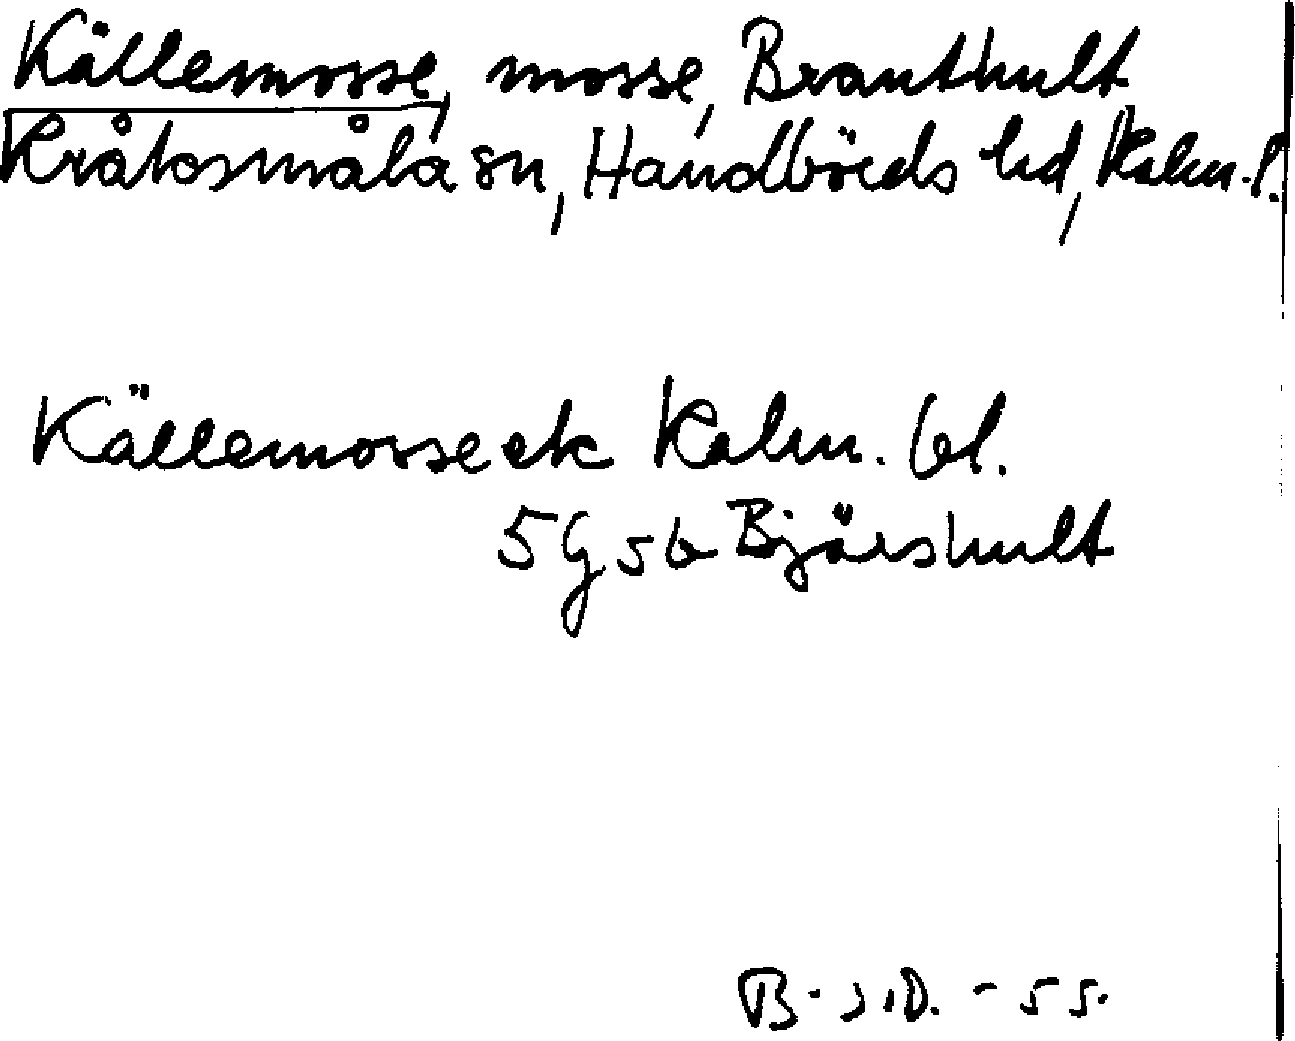 Källemosse, mosse, Brauthult
Kråksmåla sn, Handbörds hd, Kalm. l.
Källemosseck Kalm. bl.
5G5b Bjärshult
B-J.D. -55.